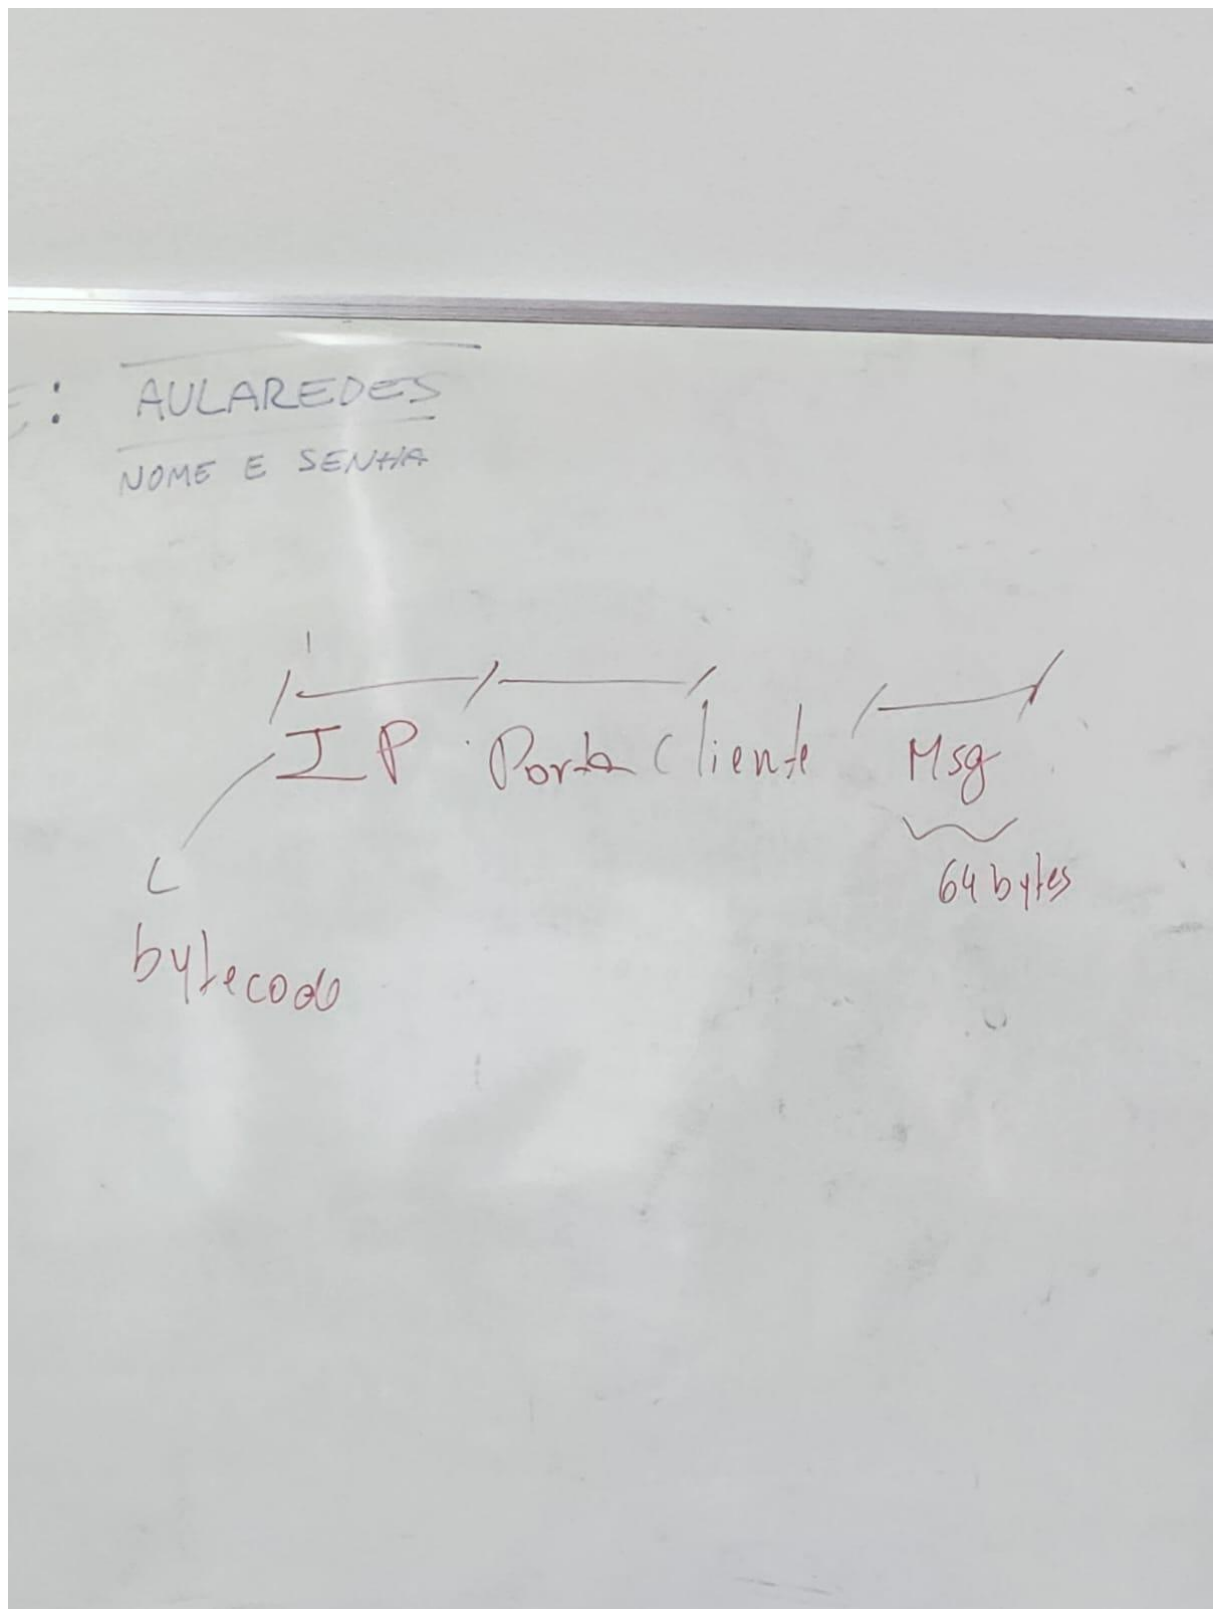 : AULAREDES
NOME E SENHA
IP Porta Cliente Msg
64 bytes
bytecode